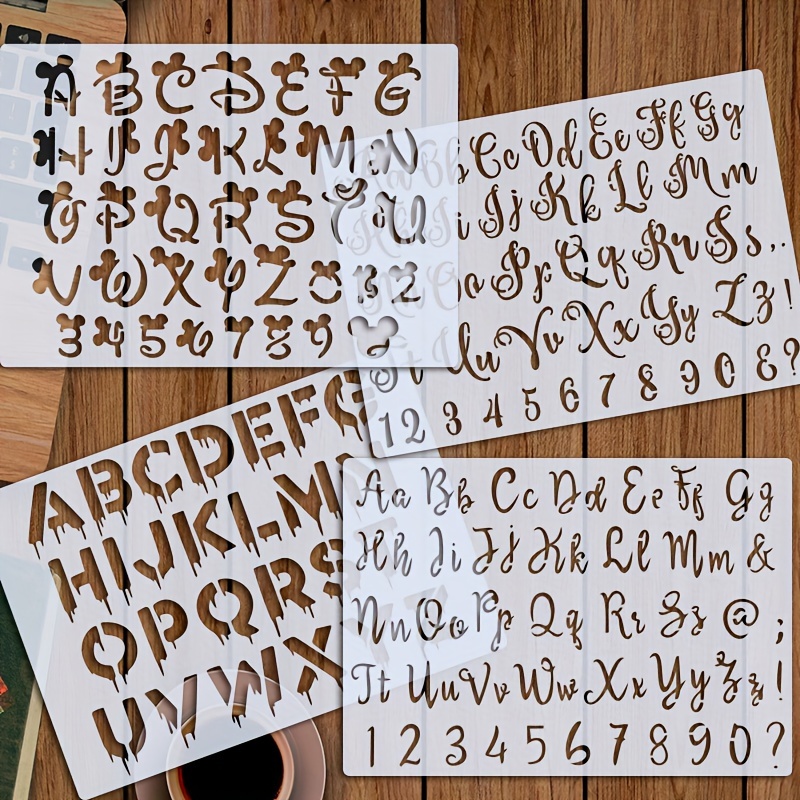 A B C D E F G
H I J K L M N
O P Q R S T U
V W X Y Z 0 1 2
3 4 5 6 7 8 9
Bb Cc Dd Ee Ff Gg
Ii Jj Kk Ll Mm
Oo Pp Qq Rr Ss , .
Tt Uu Vv Xx Yy Zz !
1 2 3 4 5 6 7 8 9 0 & ?
A B C D E F G
H I J K L M N
O P Q R S
U V W X
Aa Bb Cc Dd Ee Ff Gg
Hh Ii Jj Kk Ll Mm &
Nn Oo Pp Qq Rr Ss @ ;
Tt Uu Vv Ww Xx Yy Zz !
1 2 3 4 5 6 7 8 9 0 ?